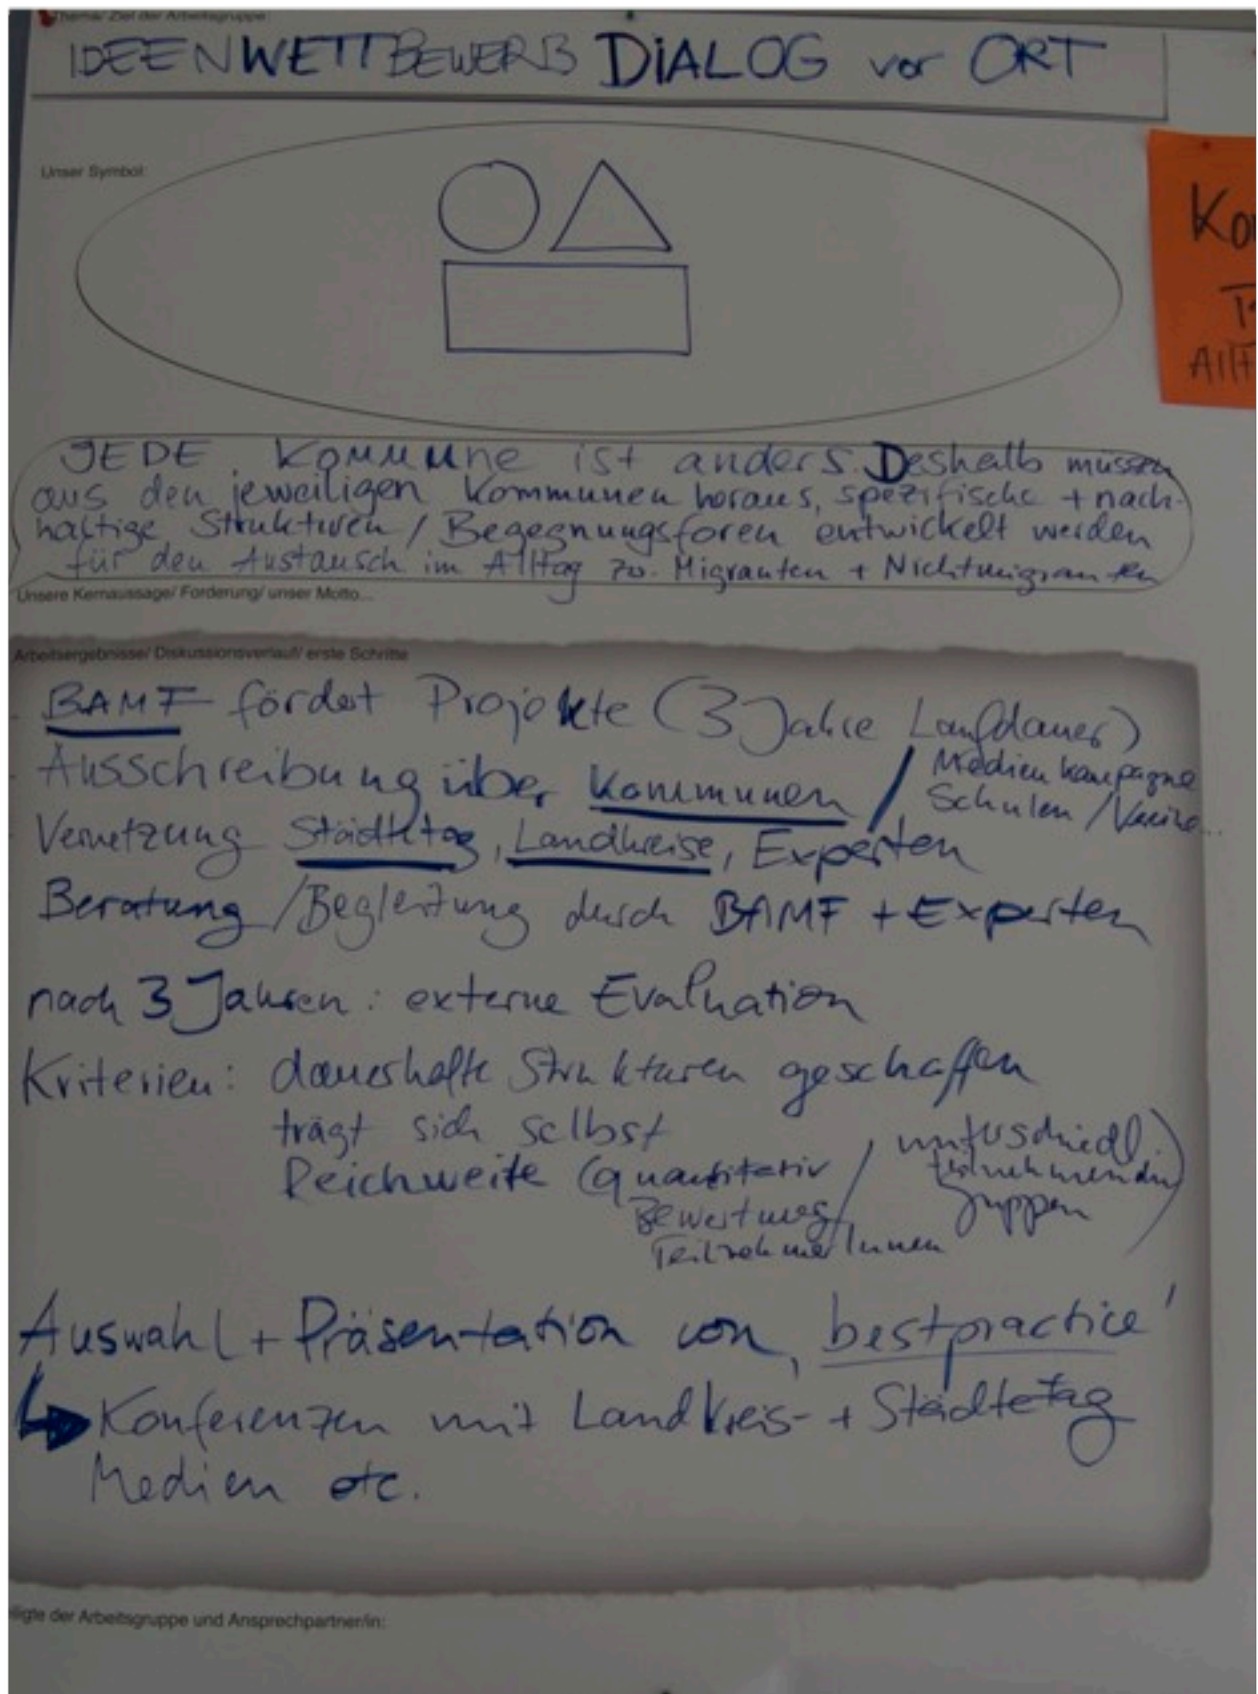 Thema/ Ziel der Arbeitsgruppe:
IDEENWETTBEWERB DIALOG vor ORT
Unser Symbol:
Ko
T
Allt
JEDE Kommune ist anders. Deshalb müssen
aus den jeweiligen Kommunen heraus, spezifische + nach-
haltige Strukturen / Begegnungsforen entwickelt werden
für den Austausch im Alltag zw. Migranten + Nichtmigranten
Unsere Kernaussage/ Forderung/ unser Motto...
Arbeitsergebnisse/ Diskussionsverlauf/ erste Schritte
- BAMF fördet Projekte (3 Jahre Laufdauer)
- Ausschreibung über Kommunen / Medienkampagne
Schulen / Vereine...
- Vernetzung Städtetag, Landkreise, Experten
Beratung / Begleitung durch BAMF + Experten
nach 3 Jahren: externe Evaluation
Kriterien: dauerhafte Strukturen geschaffen
trägt sich selbst
Reichweite (quantitativ / unterschiedl.
teilnehmenden
Gruppen)
Bewertung
TeilnehmerInnen
Auswahl + Präsentation von ,bestpractice'
↳ Konferenzen mit Landkreis- + Städtetag
Medien etc.
ligte der Arbeitsgruppe und Ansprechpartner/in: